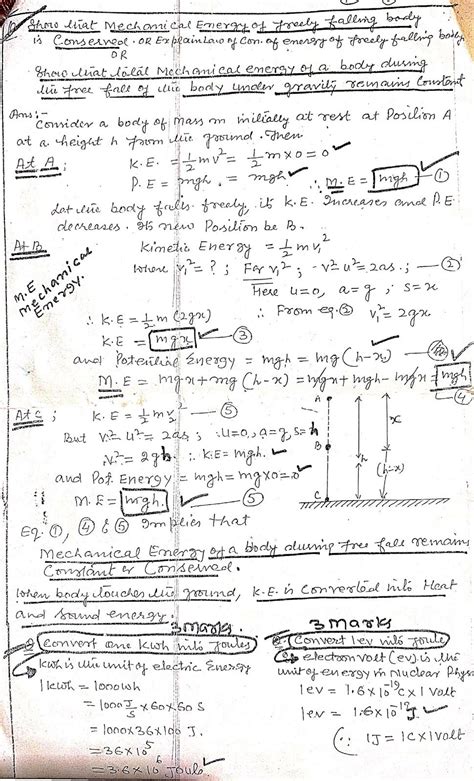 Show that Mechanical Energy of freely falling body
is Conserved. OR Explain Law of Con. of energy of freely falling body.
OR
Show that total Mechanical energy of a body during
the free fall of the body under gravity remains Constant
Ans:- Consider a body of mass m initially at rest at Position A
at a height h from the ground. Then
At A ; K.E. = 1/2 mv² = 1/2 m x 0 = 0
P.E = mgh. = mgh ∴ M.E = mgh —①
Let the body falls freely, its K.E. Increases and P.E
decreases. Its new Position be B.
At B Kinetic Energy = 1/2 m v₁²
M.E Mechanical Energy.
Where v₁² = ? ; For v₁² ; v² - u² = 2as ; —②
Here u=0, a=g ; s=x
∴ K.E = 1/2 m (2gx) ∴ From eq.② v₁² = 2gx
K.E = mgx —③
and Potential Energy = mgh = mg (h-x) —
M.E = mgx + mg (h-x) = mgx + mgh - mgx = mgh —④
At C ; K.E = 1/2 mv₂² —⑤
But v² - u² = 2as ; ∴ u=0, a=g, s=h
v₂² = 2gh ∴ K.E = mgh.
and Pot. Energy = mgh = mg x 0 = 0
M.E = mgh. —⑤
A
x
B
h
(h-x)
C
Eq. ①, ④ & ⑤ Implies that
Mechanical Energy of a body during free fall remains
Constant or Conserved.
When body touches the ground, K.E. is Converted into Heat
and sound energy.
3 Marks.
Convert one Kwh into Joules
Kwh is the unit of electric Energy
1 kwh = 1000 wh
= 1000 J/S x 60 x 60 S
= 1000 x 36 x 100 J.
= 36 x 10⁵
= 3.6 x 10⁶ Joule
3 Marks
Convert 1ev into Joule
electron volt (ev) is the
unit of energy in Nuclear Phys
1ev = 1.6 x 10⁻¹⁹ C x 1 Volt
1ev = 1.6 x 10⁻¹⁹ J
(∵ 1J = 1C x 1Volt